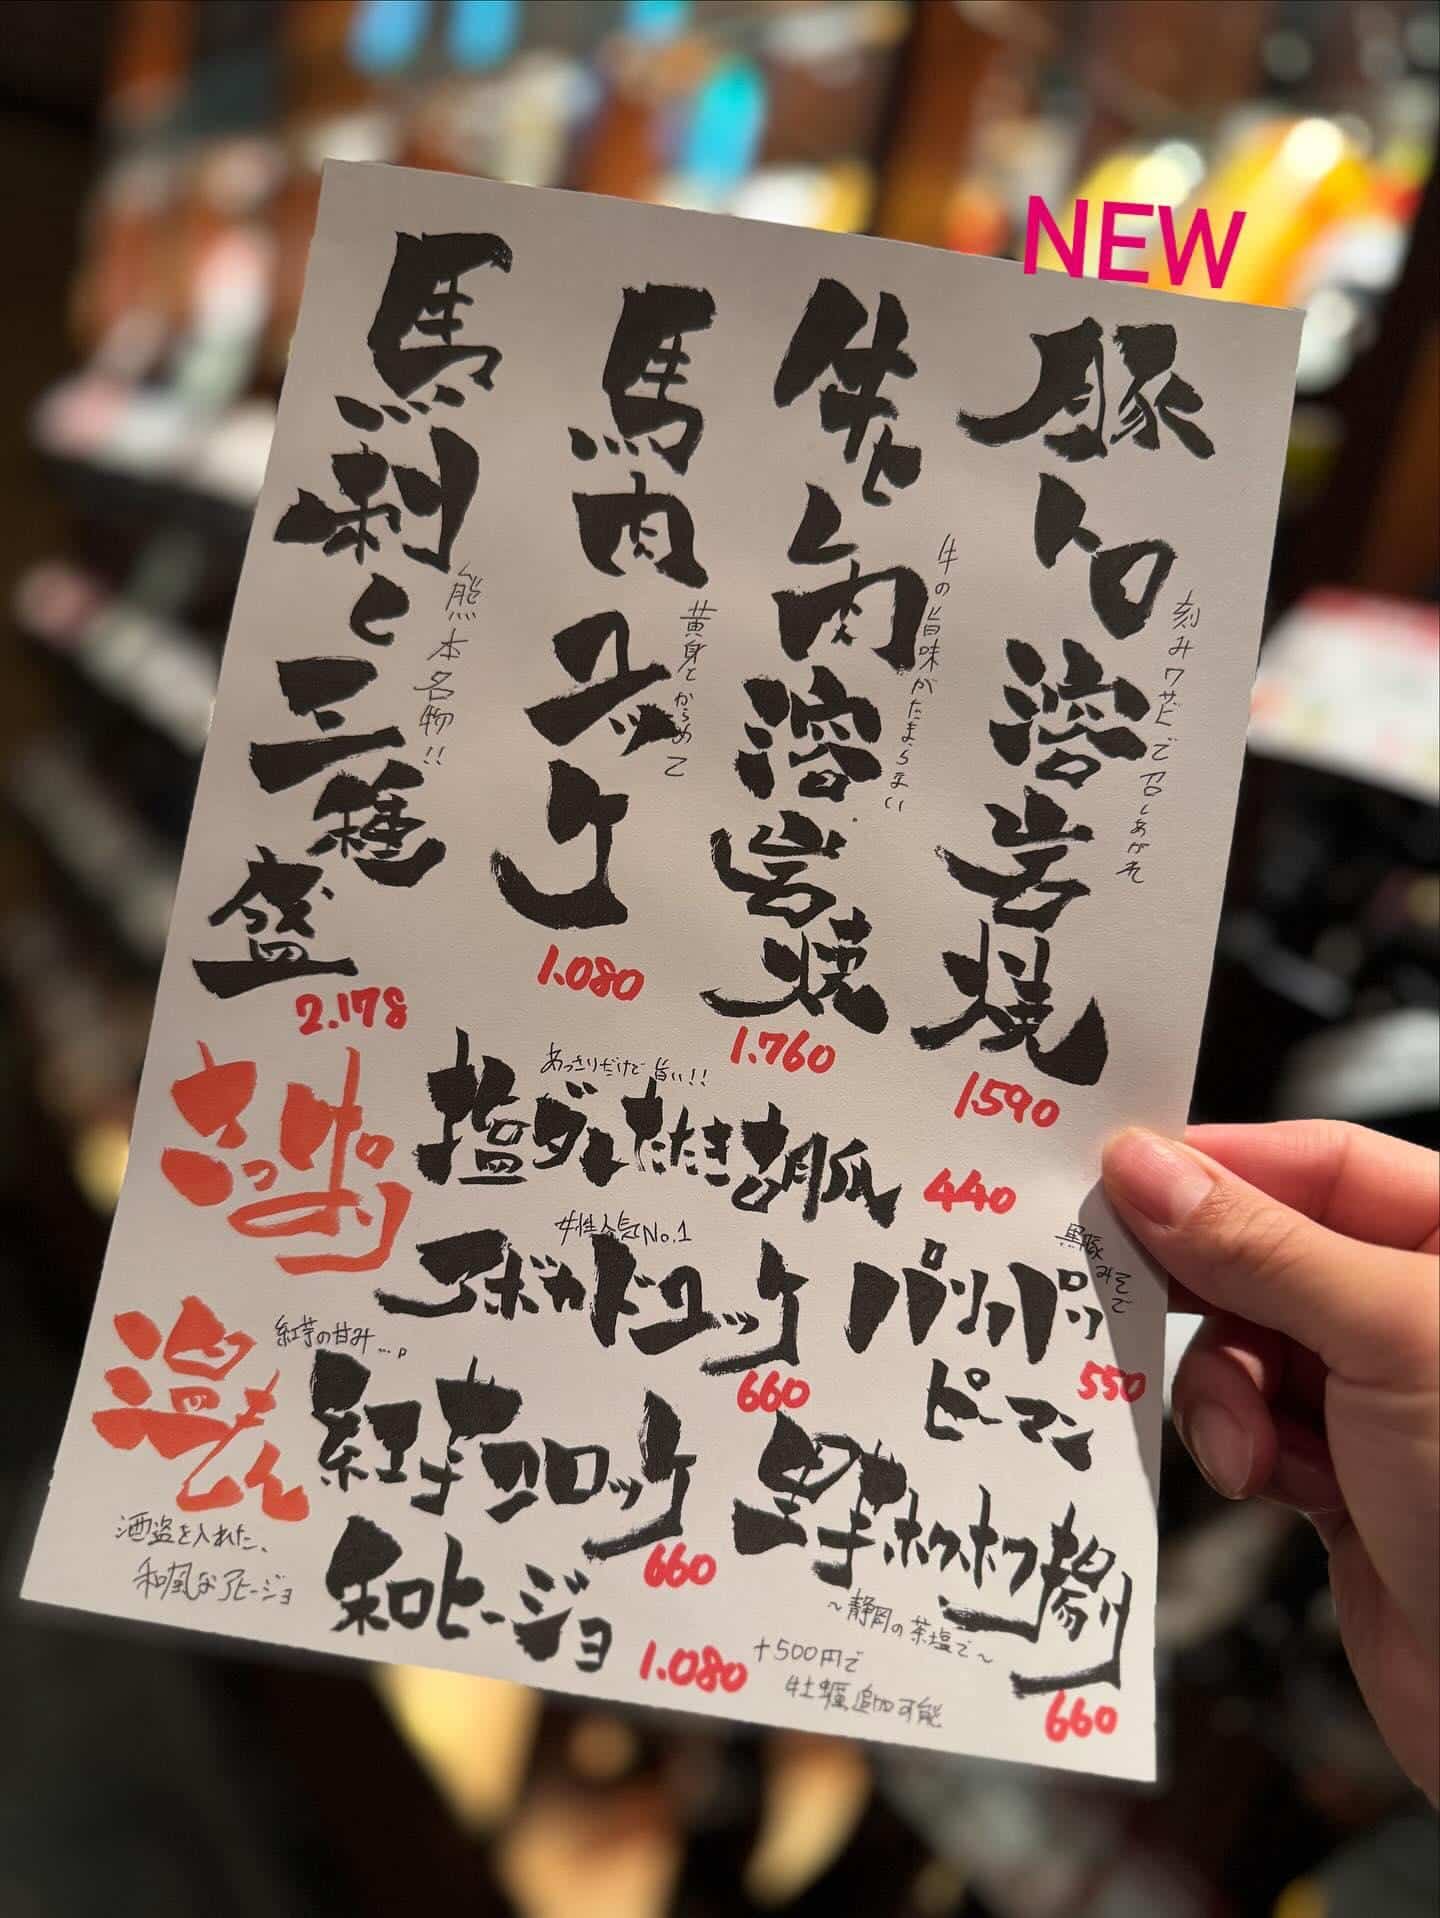 NEW
豚トロ溶岩焼
刻みワサビで召しあがれ
1590
牛ヒレ肉溶岩焼
牛の旨味がたまらない
1.760
馬肉ユッケ
黄身とからめて
1.080
馬刺し三種盛
熊本名物!!
2.178
さっぱり
あっさりだけで旨い!!
塩ダレたたき胡瓜
440
女性人気No.1
アボカドユッケ
660
黒豚みそで
パリパリピーマン
550
温もん
紅芋の甘み…。
紅芋コロッケ
660
里芋ホクホク揚
～静岡の茶塩で～
660
酒盗を入れた、
和風なアヒージョ
和ヒージョ
1.080
+500円で
牡蠣追加可能